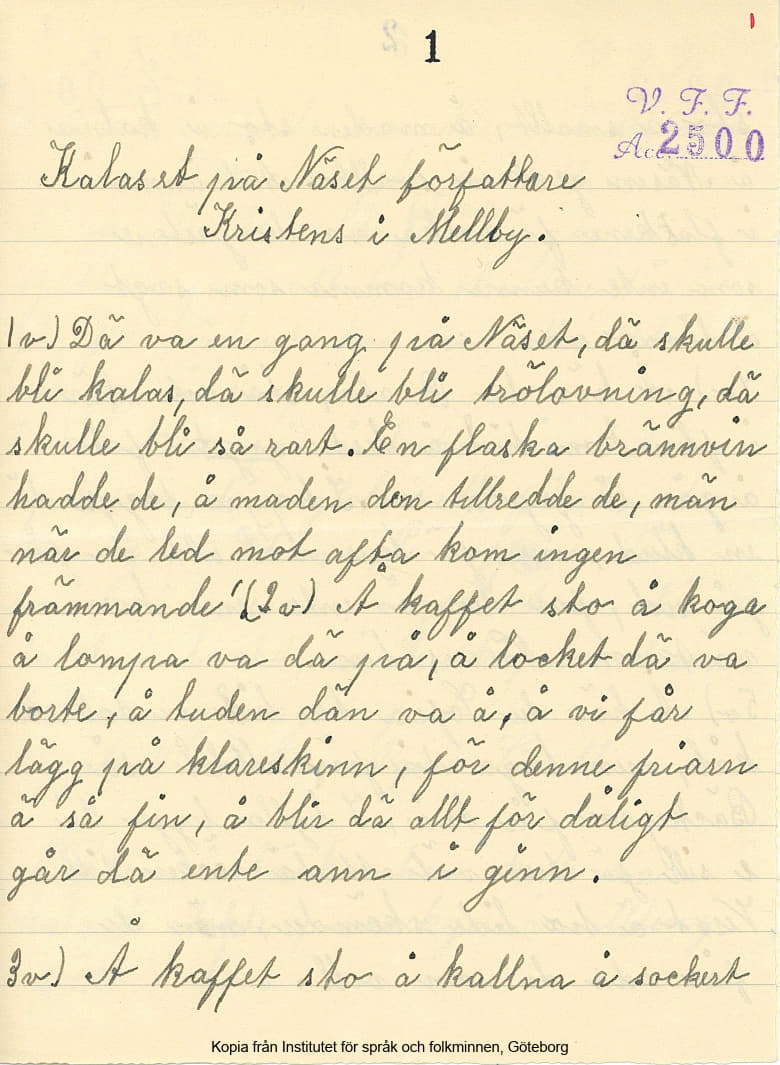 1
V. F. F.
Acc. 2500
Kalaset på Näset författare
Kristens i Mellby.
1v) Dä va en gang på Näset, dä skulle
bli kalas, dä skulle bli trölovning, dä
skulle bli så rart. En flaska brännvin
hadde de, å maden den tillredde de, män
när de led mot afta kom ingen
främmande! (2v) Å kaffet sto å koga
å lompa va dä på, å locket dä va
borte, å tuden dän va å, å vi får
lägg på klareskinn, för denne friarn
ä så fin, å blir dä allt för dåligt
går dä ente ann i ginn.
3v) Å kaffet sto å kallna å sockert
Kopia från Institutet för språk och folkminnen, Göteborg